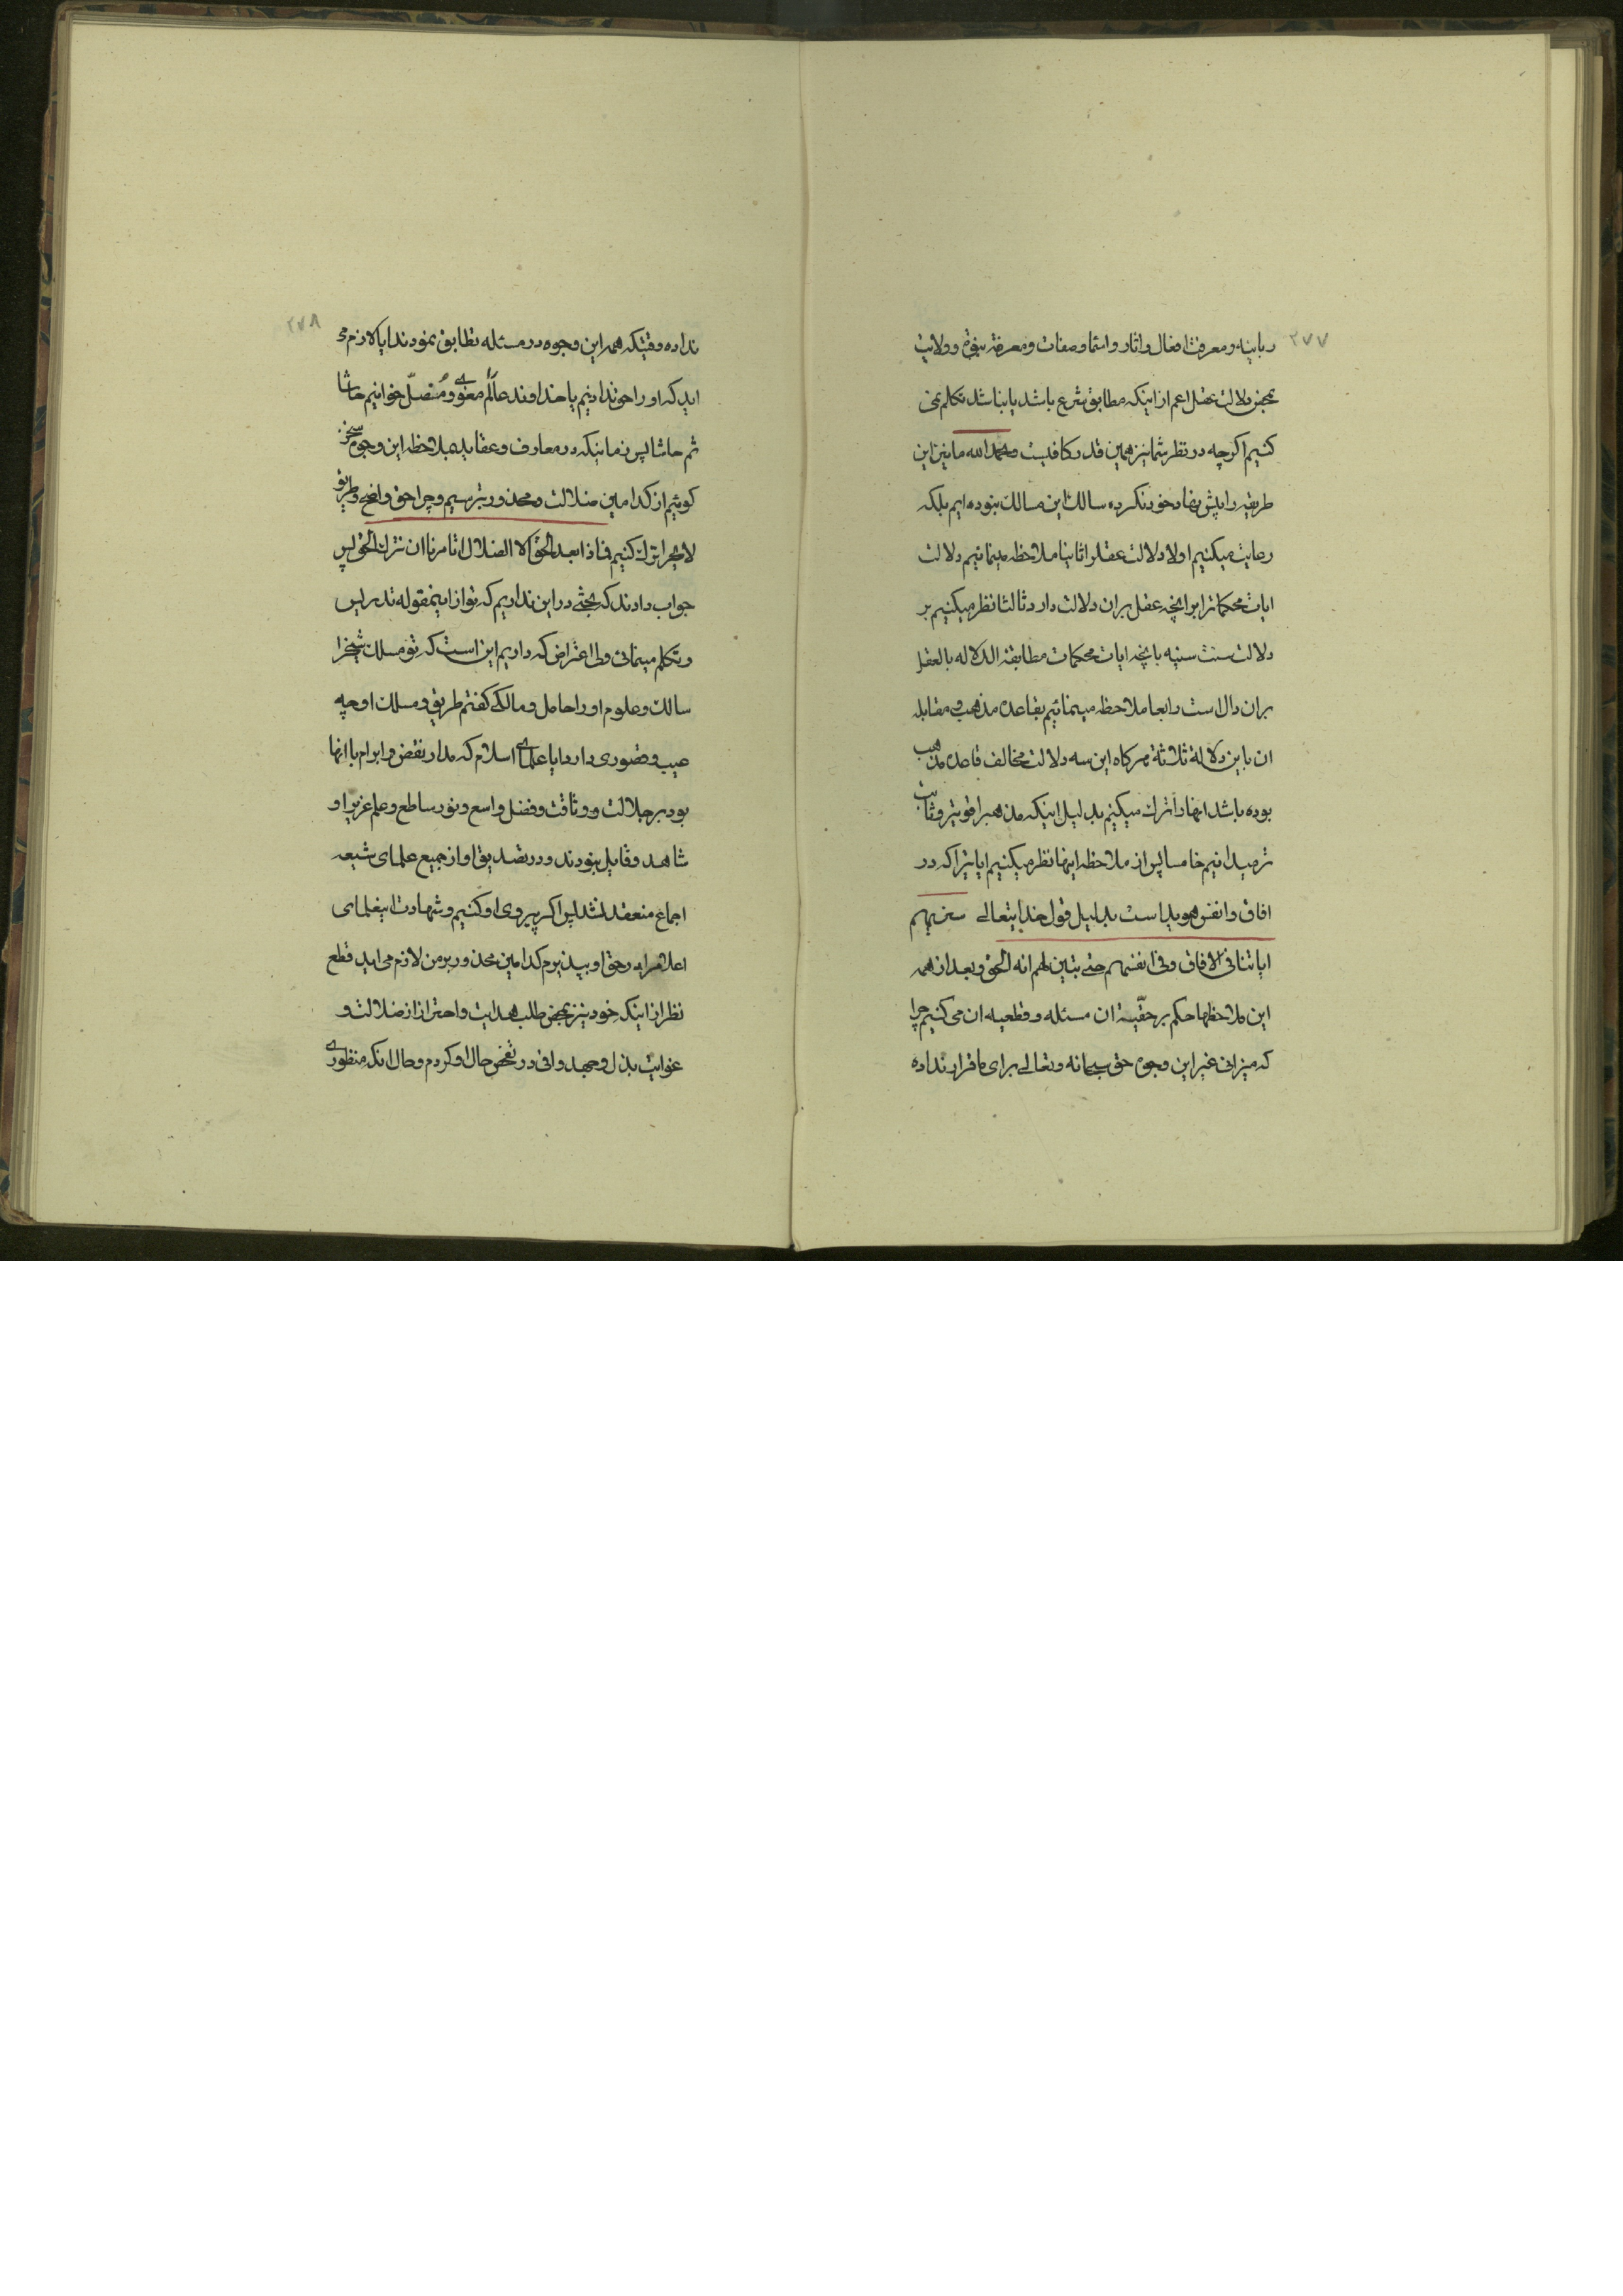 ٢٧٧
ربانیه و معرفت افعال و اثار و اسما و صفات و معرفة نبوة و ولایت
بمحض دلالت عقل اعم از اینکه مطابق شرع باشد یا نباشد تکلم نمی
کنیم اگرچه در نظر شما نیز همین قدر کافیست و بحمد الله ما نیز این
طریقه را پیش نهاد خود نکرده سالک این مسالک نبوده ایم بلکه
رعایت میکنیم اولا دلالت عقل را ثانیا ملاحظه مینمائیم دلالت
ایات محکماترا برانچه عقل بران دلالت دارد ثالثا نظر میکنیم بر
دلالت سنت سنیه بانچه ایات محکمات مطابقة الدلاله بالعقل
بران دال است رابعا ملاحظه مینمائیم بقاعده مذهب و مقابله
ان باین دلالة ثلاثة هرکاه این سه دلالت مخالف قاعده مذهب
بوده باشد انها را ترک میکنیم بدلیل اینکه مذهبرا قویتر و ثابت
تر میدانیم خامسا پس از ملاحظه اینها نظر میکنیم ایاتیرا که در
افاق و انفس هویداست بدلیل قول خدایتعالی سنریهم
ایاتنا فی الافاق و فی انفسهم حتی یتبین لهم انه الحق و بعد از همه
این ملاحظها حکم بر حقّیت ان مسئله و قطعیه ان می کنیم چرا
که میزانی غیر این وجوه حق سبحانه و تعالی برای ما قرار نداده
٢٧٨
نداده وقتیکه همه این وجوه در مسئله تطابق نمودند ایا لازم می
اید که او را حق ندانیم یا خداوند عالم معوی و مُضلّ خوانیم حاشا
ثم حاشا پس زمانیکه در معارف و عقاید بملاحظه این وجوه سخن
کوئیم از کدامین ضلالت و محذور بترسیم و چرا حق واضح و طریق
لایح را ترک کنیم فماذا بعد الحق الا الضلال اتامرنا ان نترک الحق پس
جواب دادند که بحثی در این نداریم که تو از اینمقوله تدریس
و تکلم مینمائی ولی اعتراض که داریم این است که تو مسلک شیخ را
سالک و علوم او را حامل و مالکی کفتم طریق و مسلک او چه
عیب و قصوری دارد ایا علمای اسلام که مدار نقض و ابرام با انها
بود بر جلالت و وثاقت و فضل واسع و نور ساطع و علم غزیر او
شاهد و قایل نبودند و در تصدیق او از جمیع علمای شیعه
اجماع منعقد نشد پس اکر پیروی او کنیم و شهادت اینعلمای
اعلام را در حق او بپذیرم کدامین محذور بر من لازم می اید قطع
نظر از اینکه خود نیز بمحض طلب هدایت و احتراز از ضلالت و
غوایت بذل و جهد وافی در تفحص حال او کردم و حال انکه منظوری